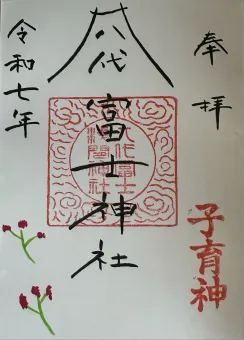 奉拝
子育神
八代富士神社
八代富士
浅間神社
令和七年